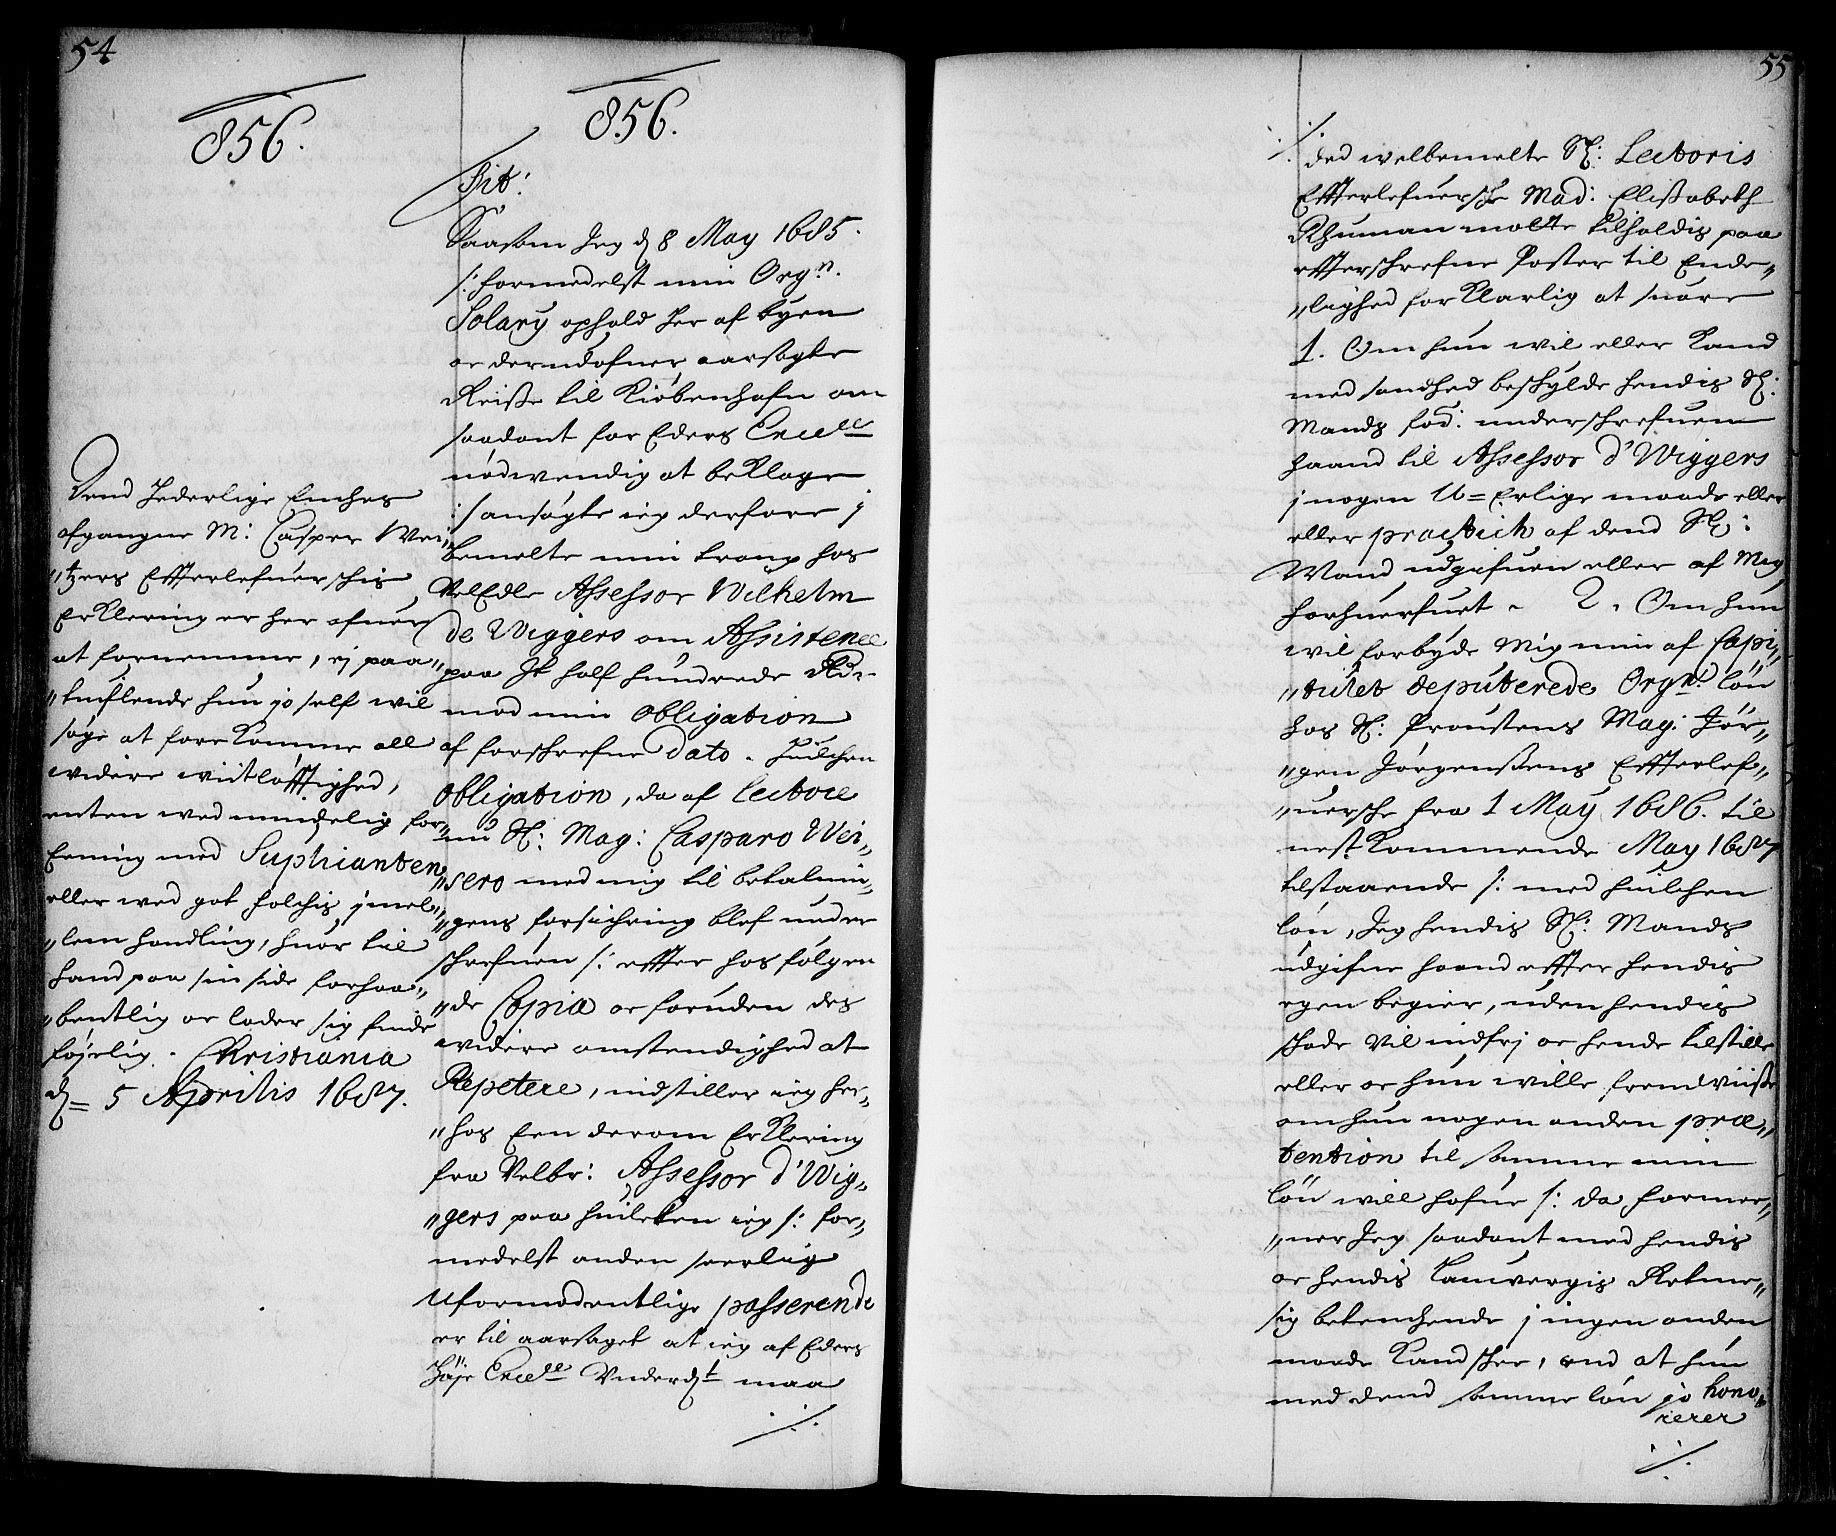 54
856.
Dend Hederlige Enches
afgangne M: Casper Wei„
„tzers Effterlefuerschis
Erklering er her ofuer
at fornemme, ej paa„
„tuiflende hun jo self wil
søge at forekomme all
widere wiitløfftighed,
enten wed mindelig for„
Eening med Suphianten
eller wed got folchis jmel„
„lem handling, huor til
hand paa sin side forhaa„
„bentlig oc lader sig finde
føjelig. Christiania
d= 5 Aprilis 1687.
856.
Tit:
Saasom Jeg d 8 May 1685.
/: formedelst min Orgn.
Solary ophold her af byen
oc derudofuer aarsagte
Reisse til Kiøbenhafn om
saadant for Eders Excell
nødwendig at beklage
:/ ansøgte ieg derfore j
bemelte min trang hos
VelEdle Assessor Wilhelm
de Wiggers om Assistence
paa Jt half hundrede Rdr.
mod min obligation
af forschrefne dato. huilchen
obligation, da af Lectore
nu Sl: Mag: Casparo Wei„
„sero med mig til betalnin„
„gens forsichring blef under
schrefuen /: effter hos følgen
„de Copia oc foruden des
widere omstendighed at
Repetere, indstiller ieg her„
„hos Een derom Erklering
fra Velbr: Assessor d'Wig„
„gers paa huileken ieg /: for„
medelst anden særlig
Uformodentlige passerende
er til aarsaget at ieg af Eders
Høje Excelle Underdt maa
./.
55
./. ded welbemelte Sl: Lectoris
Effterlefuersche Mad: Elissabeth
Rhuman motte tilholdis paa
effterschrefne Poster til Ende„
„lighed forklarlig at suare
1. Om hun wil eller kand
med sandhed beskylde hendis Sl:
Mands fod: underschrefuen
haand til Assessor d'Wiggers
j nogen U=Erlige maade eller
eller practich af dend Sl:
Mand udgifuen eller af Mig
forhuerfuet - 2. Om hun
wil forbyde Mig min af Capi„
„tulet deputerede Orgn: løn
hos Sl: Proustens Mag: Jør„
„gen Jørgenssens Effterlef„
„uersche fra 1 May 1686. til
nestkommende May 1687
tilstaaende /: med huilchen
løn, Jeg hendis Sl: Mands
udgifne haand effter hendis
egen begier, uden hendis
schade vil indfrj oc hende tilstille
eller oc hun wille fremdviisse
om hun nogen anden præ„
tention til samme min
løn will hafue /: da formee„
„ner Jeg saadant med hendis
oc hendis Laugvergis Retme„
sig betenchende j ingen anden
maade kand schee, end at hun
med dend samme løn jo hono„
rerer
./.